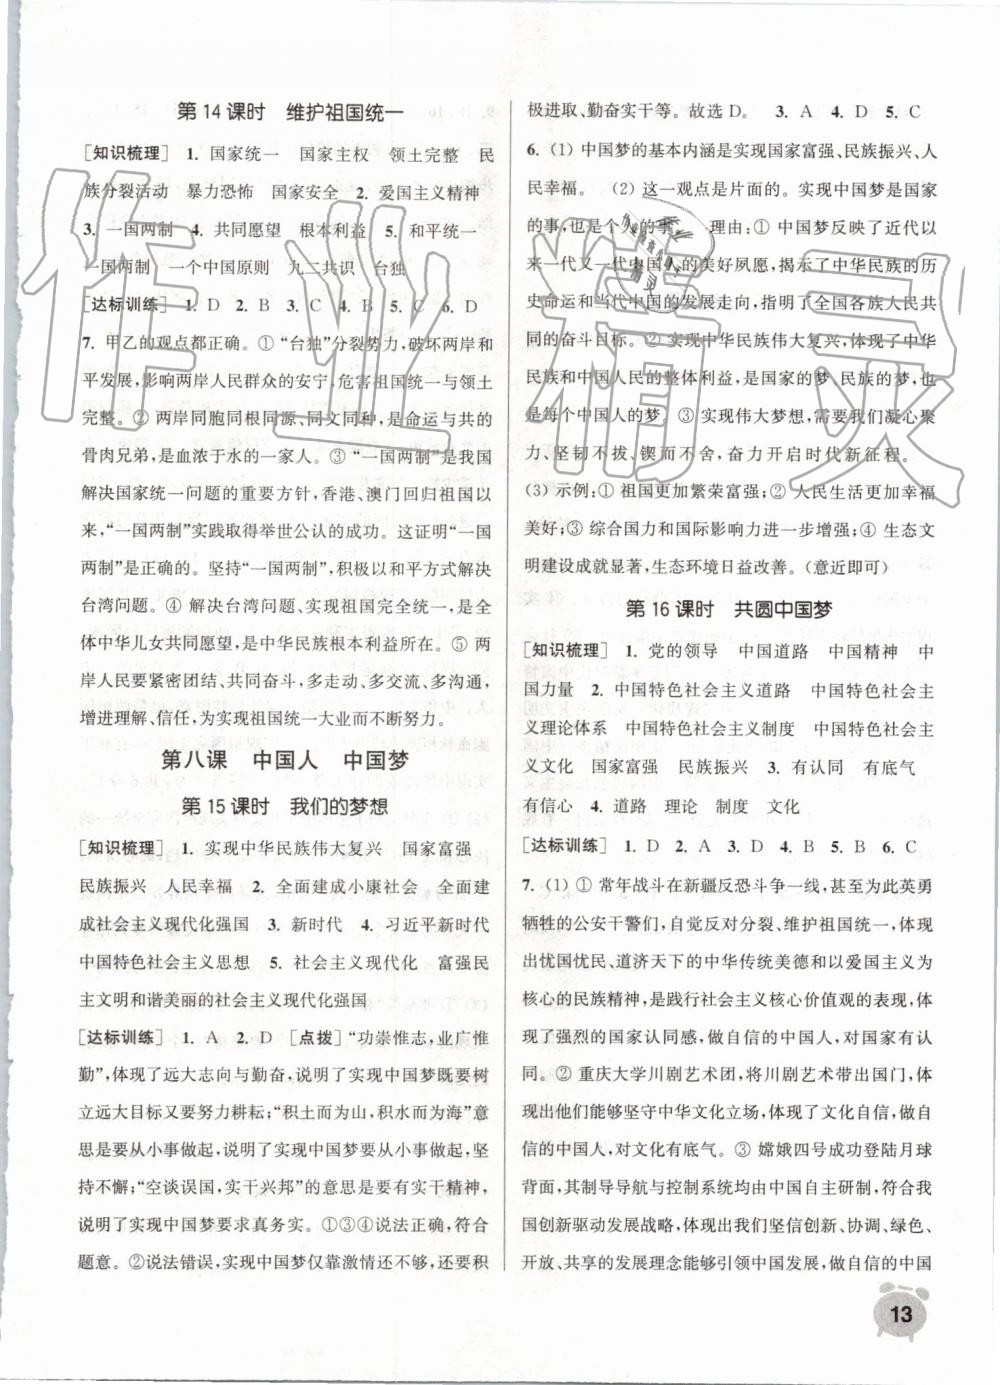 第14课时 维护祖国统一
[知识梳理] 1. 国家统一 国家主权 领土完整 民
族分裂活动 暴力恐怖 国家安全 2. 爱国主义精神
3. 一国两制 4. 共同愿望 根本利益 5. 和平统一
一国两制 一个中国原则 九二共识 台独
[达标训练] 1. D 2. B 3. C 4. B 5. C 6. D
7. 甲乙的观点都正确。① “台独”分裂势力,破坏两岸和
平发展,影响两岸人民群众的安宁,危害祖国统一与领土
完整。② 两岸同胞同根同源、同文同种,是命运与共的
骨肉兄弟,是血浓于水的一家人。③ “一国两制”是我国
解决国家统一问题的重要方针,香港、澳门回归祖国以
来,“一国两制”实践取得举世公认的成功。这证明“一国
两制”是正确的。坚持“一国两制”,积极以和平方式解决
台湾问题。④ 解决台湾问题、实现祖国完全统一,是全
体中华儿女共同愿望,是中华民族根本利益所在。⑤ 两
岸人民要紧密团结、共同奋斗,多走动、多交流、多沟通,
增进理解、信任,为实现祖国统一大业而不断努力。
第八课 中国人 中国梦
第15课时 我们的梦想
[知识梳理] 1. 实现中华民族伟大复兴 国家富强
民族振兴 人民幸福 2. 全面建成小康社会 全面建
成社会主义现代化强国 3. 新时代 4. 习近平新时代
中国特色社会主义思想 5. 社会主义现代化 富强民
主文明和谐美丽的社会主义现代化强国
[达标训练] 1. A 2. D [点拨] “功崇惟志,业广惟
勤”,体现了远大志向与勤奋,说明了实现中国梦既要树
立远大梦想又要努力耕耘;“积土而为山,积水而为海”意
思是要从小事做起,说明了实现中国梦要从小事做起,坚
持不懈;“空谈误国,实干兴邦”的意思是要有实干精神,
说明了实现中国梦要求真务实。①③④说法正确,符合
题意。②说法错误,实现中国梦仅靠激情还不够,还要积
极进取、勤奋实干等。故选 D。 3. A 4. D 5. C
6. (1) 中国梦的基本内涵是实现国家富强、民族振兴、人
民幸福。 (2) 这一观点是片面的。实现中国梦是国家
的事,也是个人的事。 理由:① 中国梦反映了近代以
来一代又一代中国人的美好夙愿,揭示了中华民族的历
史命运和当代中国的发展走向,指明了全国各族人民共
同的奋斗目标。② 实现中华民族伟大复兴,体现了中华
民族和中国人民的整体利益,是国家的梦、民族的梦,也
是每个中国人的梦。③ 实现伟大梦想,需要我们凝心聚
力、坚韧不拔、锲而不舍,奋力开启时代新征程。
(3) 示例:① 祖国更加繁荣富强;② 人民生活更加幸福
美好;③ 综合国力和国际影响力进一步增强;④ 生态文
明建设成就显著,生态环境日益改善。(意近即可)
第16课时 共圆中国梦
[知识梳理] 1. 党的领导 中国道路 中国精神 中
国力量 2. 中国特色社会主义道路 中国特色社会主
义理论体系 中国特色社会主义制度 中国特色社会主
义文化 国家富强 民族振兴 3. 有认同 有底气
有信心 4. 道路 理论 制度 文化
[达标训练] 1. D 2. A 3. D 4. A 5. B 6. C
7. (1) ① 常年战斗在新疆反恐斗争一线,甚至为此英勇
牺牲的公安干警们,自觉反对分裂、维护祖国统一,体现
出忧国忧民、道济天下的中华传统美德和以爱国主义为
核心的民族精神,是践行社会主义核心价值观的表现,体
现了强烈的国家认同感,做自信的中国人,对国家有认同
感。② 重庆大学川剧艺术团,将川剧艺术带出国门,体
现出他们能够坚守中华文化立场,体现了文化自信,做自
信的中国人,对文化有底气。③ 嫦娥四号成功登陆月球
背面,其制导导航与控制系统均由中国自主研制,符合我
国创新驱动发展战略,体现出我们坚信创新、协调、绿色、
开放、共享的发展理念能够引领中国发展,做自信的中国
13
作业精灵